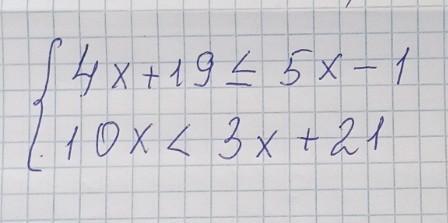 4x+19≤5x-1
10x<3x+21